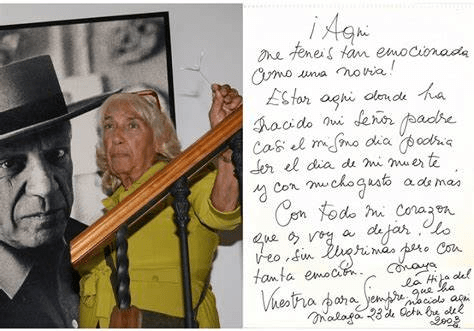 ¡Aqui
me teneis tan emocionada
como una novia!
Estar aqui donde ha
nacido mi Señor padre
casi el mismo dia podria
ser el dia de mi muerte
y con mucho gusto ademas
Con todo mi corazon
que os voy a dejar, lo
veo, sin lagrimas pero con
tanta emoción. Maya
la Hija del
que ha
Vuestra para Siempre, nacido aqui
Malaga 23 de Octubre del
2003